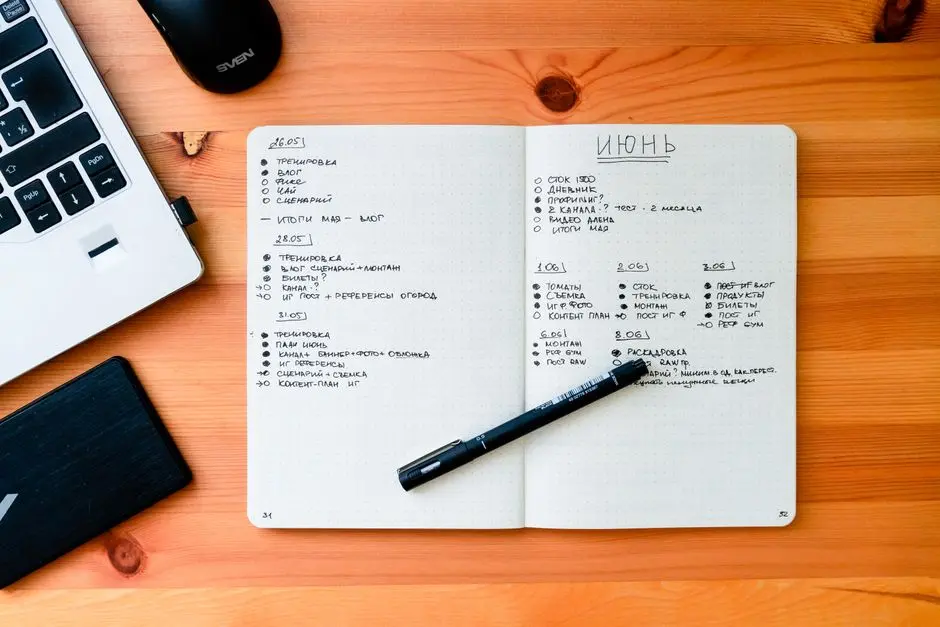 Delete
Pause
PgUp
PgDn
SVEN
26.05
ТРЕНИРОВКА
ВЛОГ
ФИКС
ЧАЙ
СЦЕНАРИЙ
— ИТОГИ МАЯ – ВЛОГ
28.05
ТРЕНИРОВКА
ВЛОГ СЦЕНАРИЙ+МОНТАЖ
БИЛЕТЫ?
КАНАЛ-?
ИГ ПОСТ + РЕФЕРЕНСЫ ОГОРОД
31.05
ТРЕНИРОВКА
ПЛАН ИЮНЬ
КАНАЛ + БАННЕР+ФОТО+ОБЛОЖКА
ИГ РЕФЕРЕНСЫ
СЦЕНАРИЙ + СЪЕМКА
КОНТЕНТ-ПЛАН ИГ
31
ИЮНЬ
СТОК 1500
ДНЕВНИК
ПРОФИЛИНГ?
2 КАНАЛА-? ТЕСТ - 2 МЕСЯЦА
ВИДЕО АЛЕНА
ИТОГИ МАЯ
1.06
ТОМАТЫ
СЪЕМКА
ИГ Ф ФОТО
КОНТЕНТ ПЛАН
2.06
СТОК
ТРЕНИРОВКА
МОНТАЖ
ПОСТ ИГ Ф
3.06
ПОСТ ИГ ВЛОГ
ПРОДУКТЫ
БИЛЕТЫ
ПОСТ ИГ
РЕФ БУМ
6.06
МОНТАЖ
РЕФ БУМ
ПОСТ RAW
8.06
РАСКАДРОВКА
RAW ПР.
МИНИМ. В ОД. КАК ПЕРЕСТ.
ВЕЩИ
0.5
32